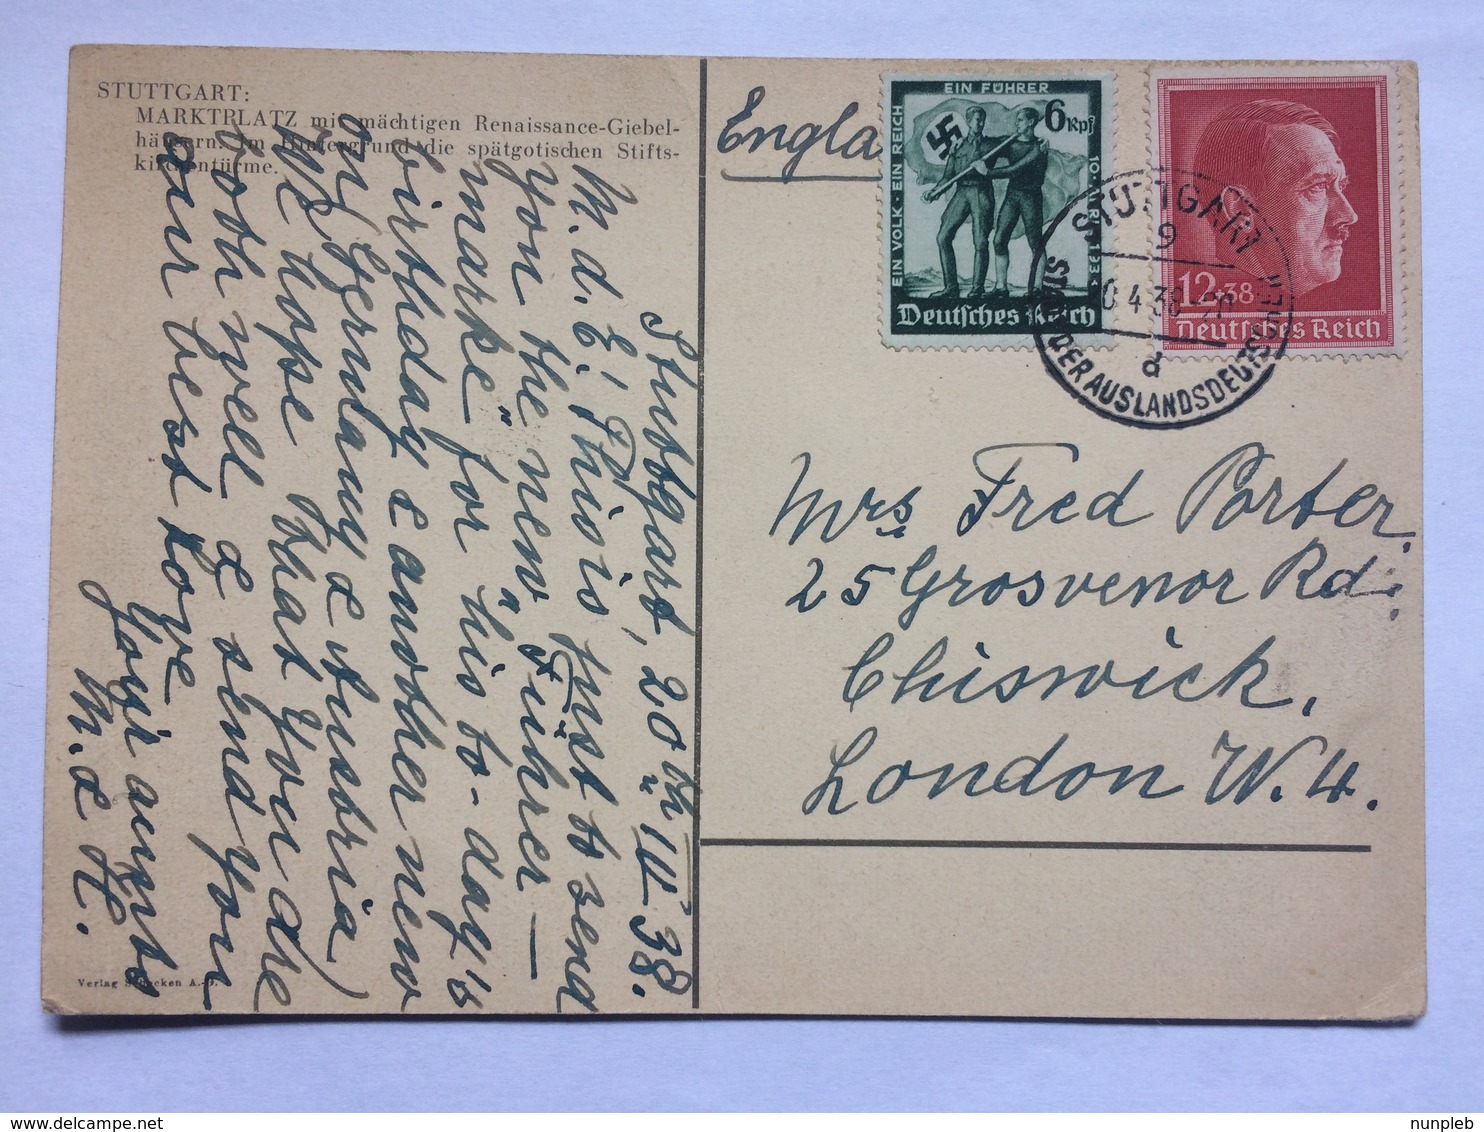 STUTTGART:
MARKTPLATZ mit mächtigen Renaissance-Giebel-
häusern. Im Hintergrund die spätgotischen Stifts-
kirchentürme.
Stuttgart, 20th IV 38.
M. d. E! This is just to send
you the new "Führer-
marke" for his to-day's
birthday & another new
one (Germany & Austria)
We hope that you are
both well & send you
our best love
Your aunts
M. & H.
Verlag A.-G.
England
EIN VOLK · EIN REICH
EIN FÜHRER
6 Rpf
10. APRIL 1938
Deutsches Reich
12+38
Deutsches Reich
STUTTGART
9
20.4.38-20
d
STADT DER AUSLANDSDEUTSCHEN
Mrs Fred Porter.
25 Grosvenor Rd:
Chiswick,
London W. 4.
nunpleb